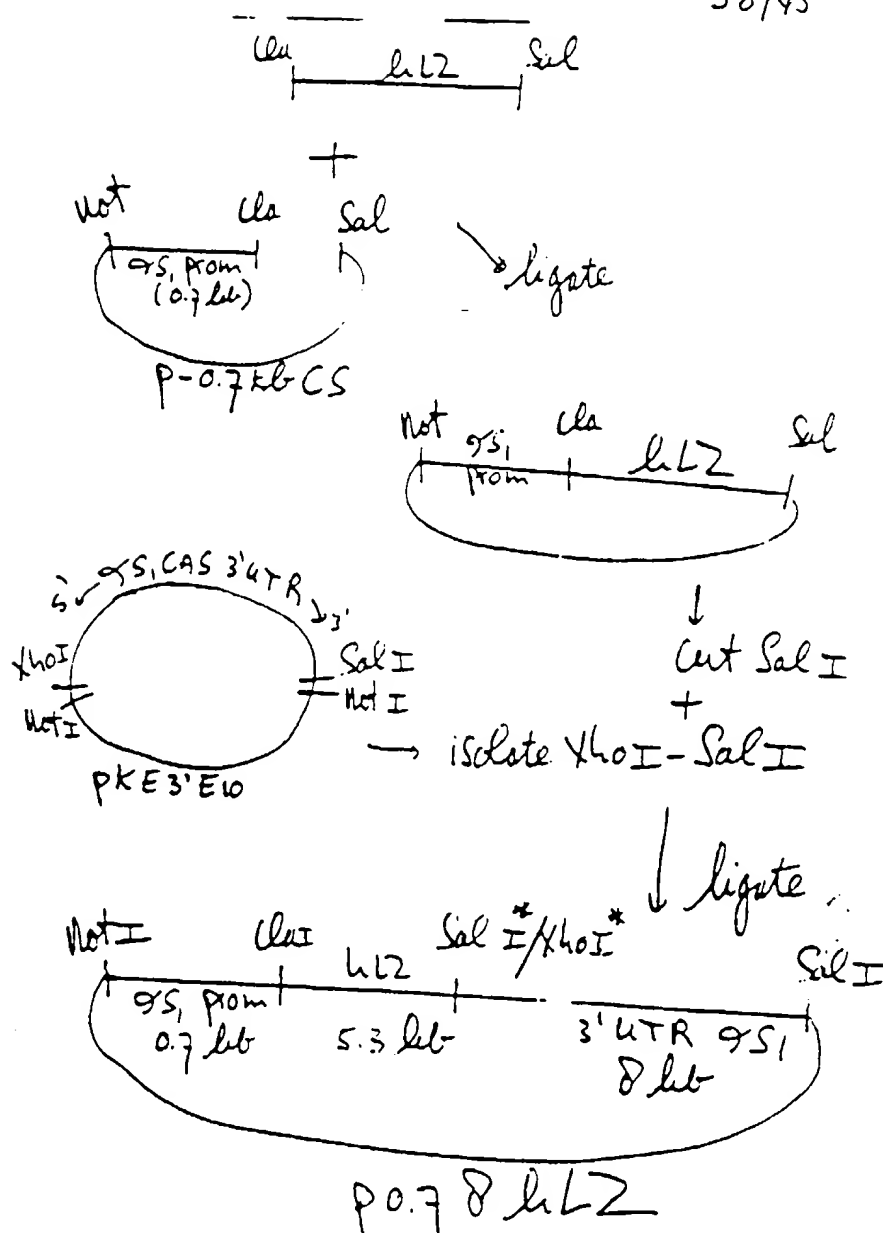 Cla hLZ Sal
+
Not Cla Sal
αS₁ prom
(0.7 kb)
ligate
p-0.7kb CS
Not αS₁ prom Cla hLZ Sal
5' αS₁ CAS 3'UTR 3'
XhoI
NotI
Sal I
Not I
pKE3'E10
Cut Sal I
+
isolate XhoI-Sal I
ligate
NotI ClaI hLZ Sal I*/XhoI* Sal I
αS₁ prom
0.7 kb 5.3 kb 3'UTR αS₁
8 kb
p0.7 8 hLZ